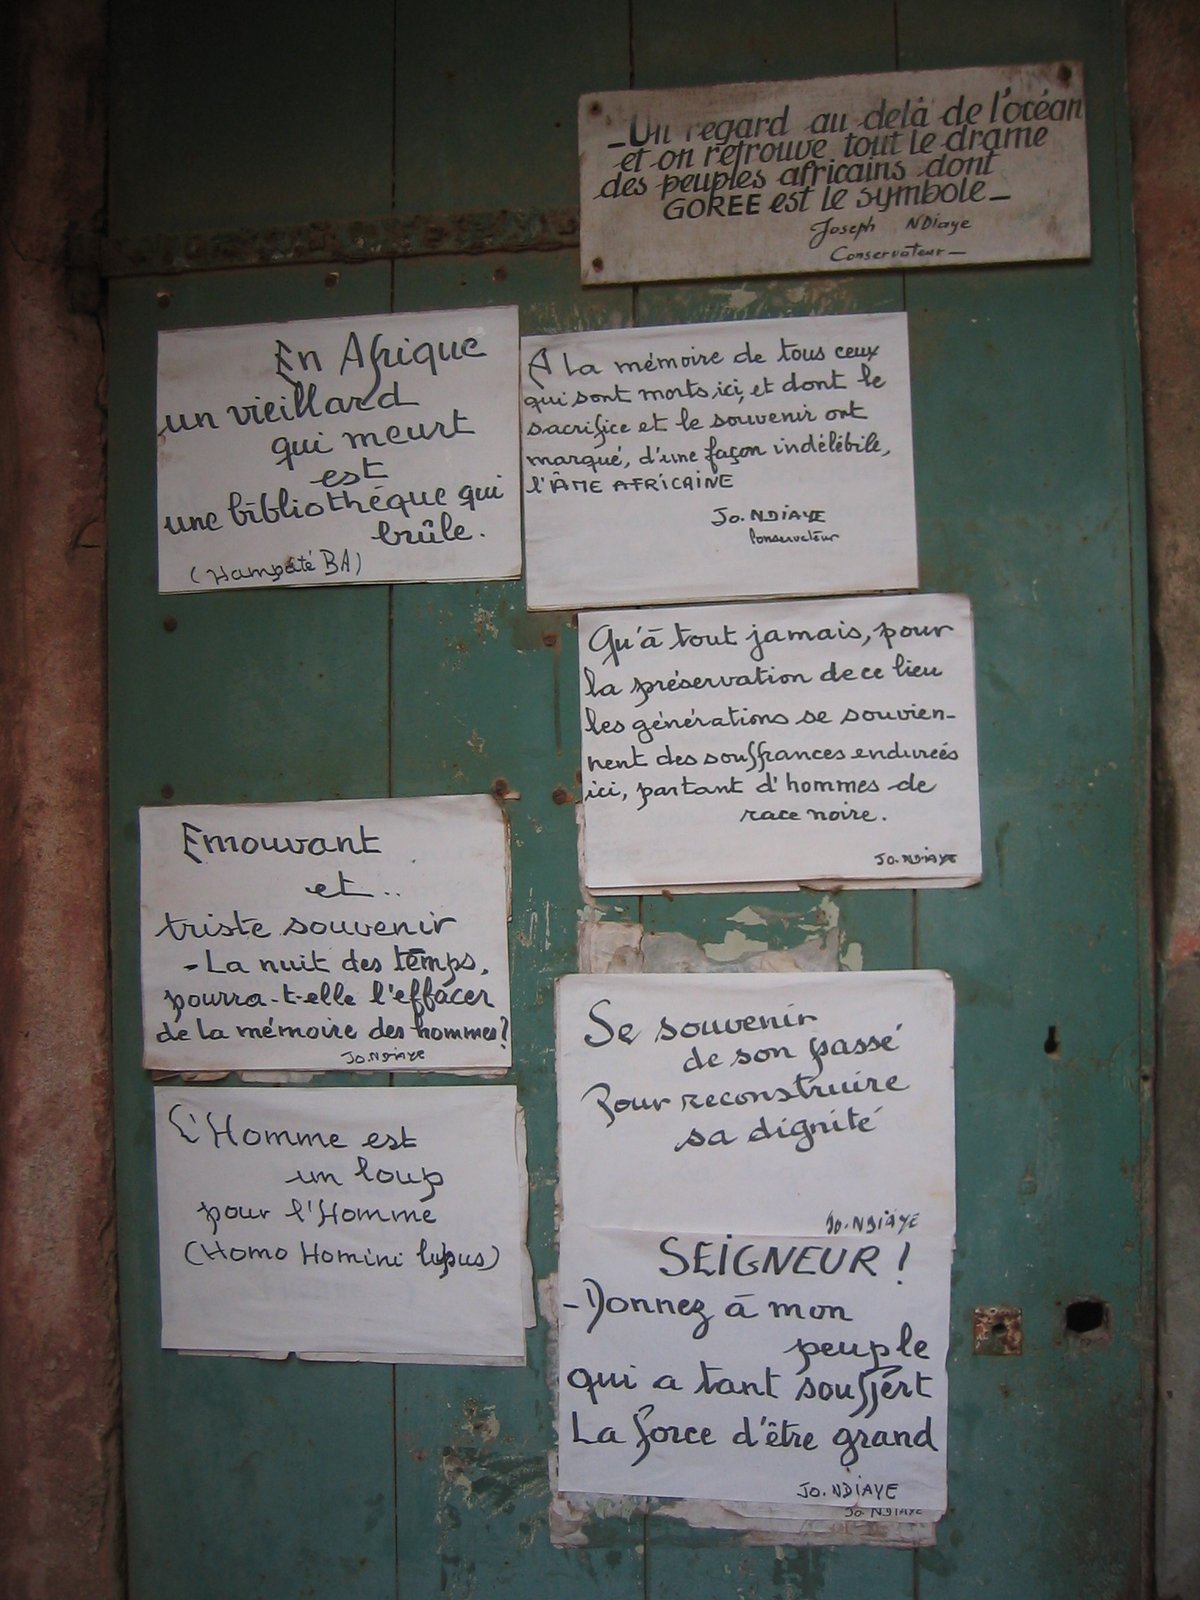 _Un regard au delà de l'océan
et on retrouve tout le drame
des peuples africains dont
GOREE est le symbole_
Joseph NDiaye
Conservateur_
En Afrique
un vieillard
qui meurt
est
une bibliothéque qui
brûle.
(Hampaté BA)
A La mémoire de tous ceux
qui sont morts ici, et dont le
sacrifice et le souvenir ont
marqué, d'une façon indélébile,
l'ÂME AFRICAINE
Jo. NDIAYE
Conservateur
Qu'à tout jamais, pour
la préservation de ce lieu
les générations se souvien-
nent des souffrances endureés
ici, partant d'hommes de
race noire.
Jo. NDIAYE
Emouvant
et..
triste souvenir
- La nuit des temps,
pourra-t-elle l'effacer
de la mémoire des hommes?
Jo. NDIAYE
L'Homme est
un loup
pour l'Homme
(Homo Homini lupus)
Se souvenir
de son passé
Pour reconstruire
sa dignité
Jo. NDIAYE
SEIGNEUR !
- Donnez à mon
peuple
qui a tant souffert
La force d'être grand
Jo. NDIAYE
Jo. NDIAYE